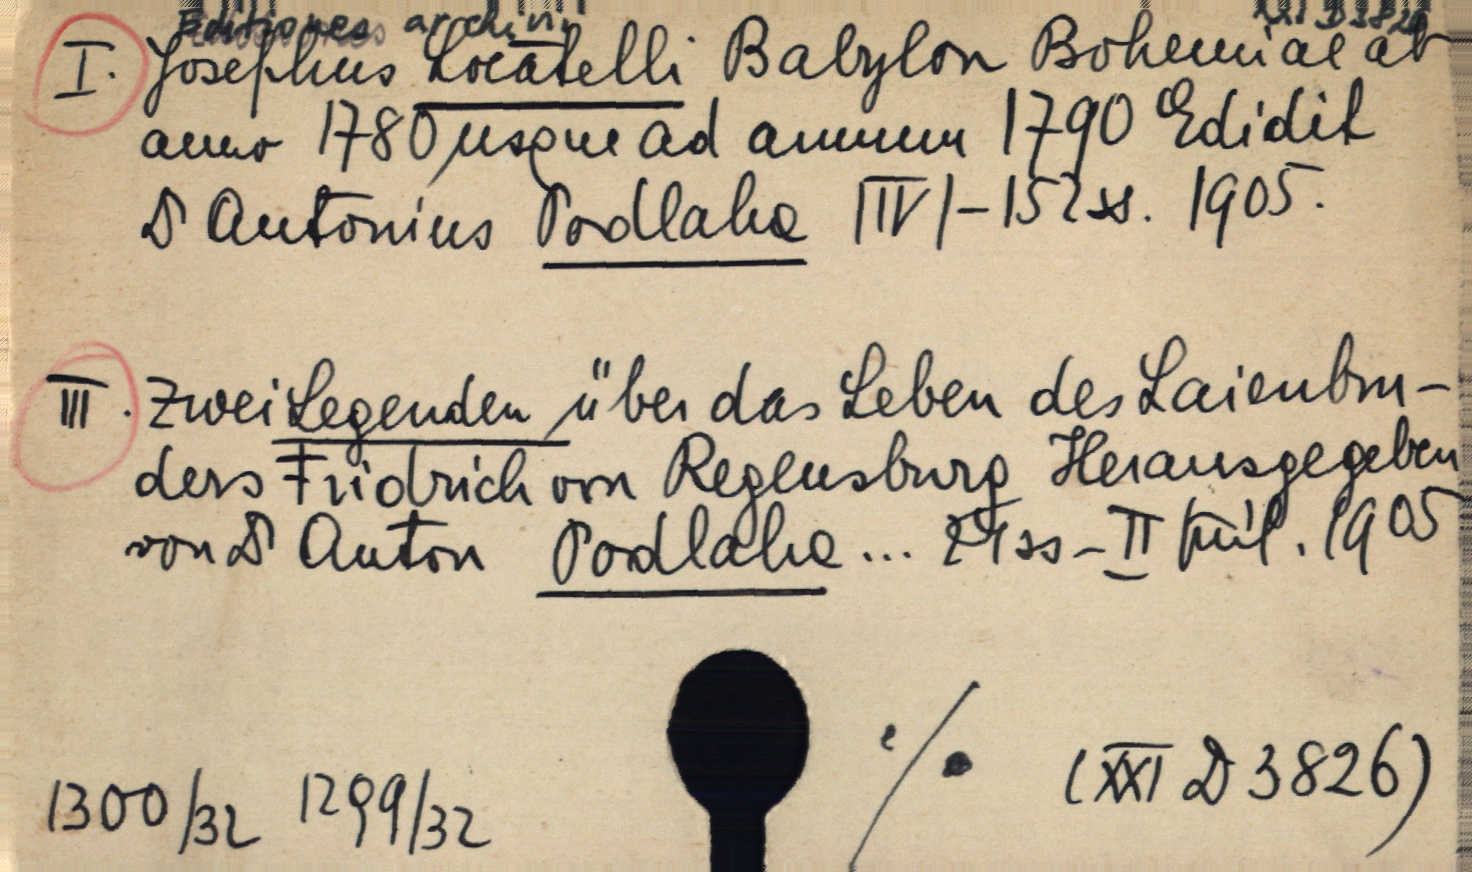 Editiones archivii XXI D 3826
I. Josephus Locatelli Babylon Bohemiae ab
anno 1780 usque ad annum 1790 Edidit
Dr Antonius Podlaha |IV|-152 ss. 1905.
III. Zwei Legenden über das Leben des Laienbru-
ders Fridrich von Regensburg Herausgegeben
von Dr Anton Podlaha ... 24 ss - II příl. 1905
(XXI D 3826)
1300/32 1299/32